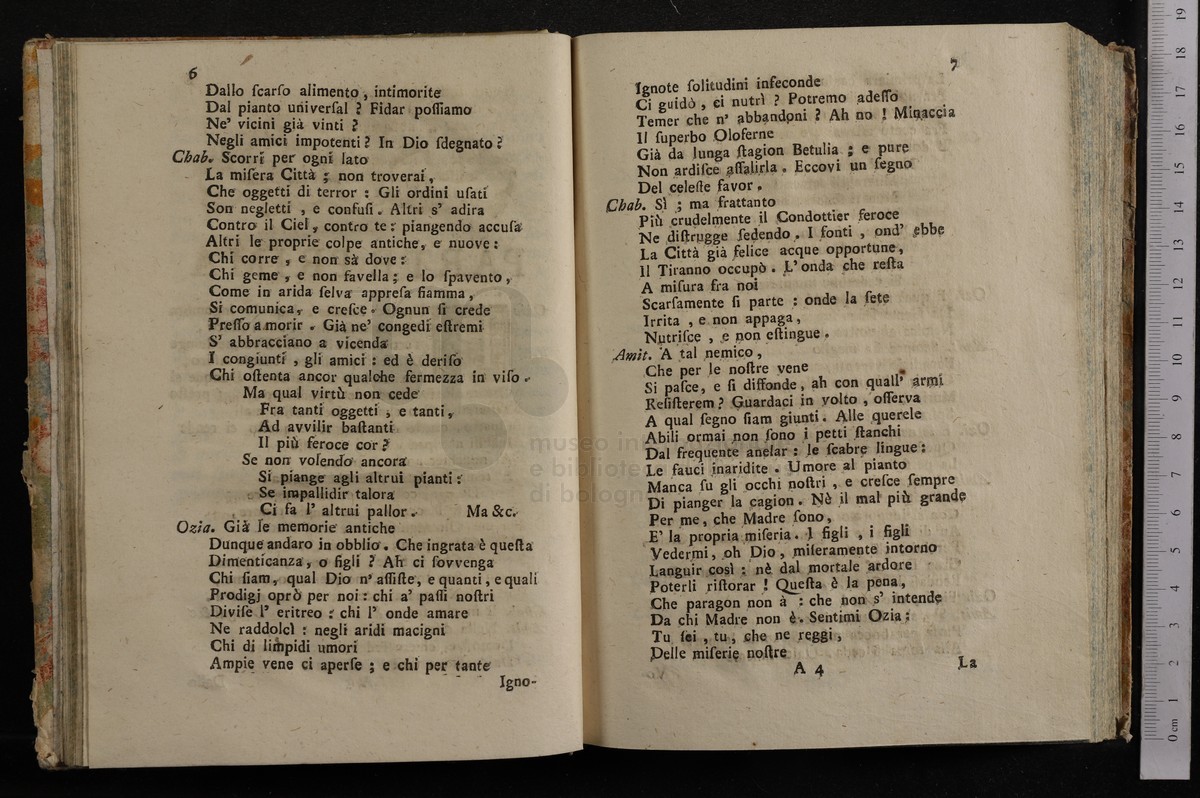 6
Dallo ſcarſo alimento, intimorite
Dal pianto univerſal ? Fidar poſſiamo
Ne' vicini già vinti ?
Negli amici impotenti? In Dio ſdegnato?
Chab. Scorri per ogni lato
La miſera Città ; non troverai,
Che oggetti di terror : Gli ordini uſati
Son negletti , e confuſi. Altri s' adira
Contro il Ciel, contro te: piangendo accuſa
Altri le proprie colpe antiche, e nuove:
Chi corre , e non sà dove:
Chi geme , e non favella; e lo ſpavento,
Come in arida ſelva appreſa fiamma,
Si comunica, e creſce. Ognun ſi crede
Preſſo a morir . Già ne' congedi eſtremi
S' abbracciano a vicenda
I congiunti , gli amici : ed è deriſo
Chi oſtenta ancor qualche fermezza in viſo.
Ma qual virtù non cede
Fra tanti oggetti , e tanti,
Ad avvilir baſtanti
Il più feroce cor ?
Se non volendo ancora
Si piange agli altrui pianti:
Se impallidir talora
Ci fa l' altrui pallor. Ma &c.
Ozia. Già le memorie antiche
Dunque andaro in obblio. Che ingrata è queſta
Dimenticanza, o figli ? Ah ci ſovvenga
Chi ſiam, qual Dio n' aſſiſte, e quanti, e quali
Prodigj oprò per noi: chi a' paſſi noſtri
Diviſe l' eritreo : chi l' onde amare
Ne raddolcì : negli aridi macigni
Chi di limpidi umori
Ampie vene ci aperſe ; e chi per tante
Igno-
7
Ignote ſolitudini infeconde
Ci guidò , ci nutrì ? Potremo adeſſo
Temer che n' abbandoni ? Ah no ! Minaccia
Il ſuperbo Oloferne
Già da lunga ſtagion Betulia ; e pure
Non ardiſce aſſalirla. Eccovi un ſegno
Del celeſte favor.
Chab. Sì ; ma frattanto
Più crudelmente il Condottier feroce
Ne diſtrugge ſedendo. I fonti , ond' ebbe
La Città già felice acque opportune,
Il Tiranno occupò. L' onda che reſta
A miſura fra noi
Scarſamente ſi parte : onde la ſete
Irrita , e non appaga,
Nutriſce , e non eſtingue.
Amit. A tal nemico,
Che per le noſtre vene
Si paſce, e ſi diffonde, ah con quall' armi
Reſiſterem? Guardaci in volto , oſſerva
A qual ſegno ſiam giunti. Alle querele
Abili ormai non ſono i petti ſtanchi
Dal frequente anelar : le ſcabre lingue:
Le fauci inaridite. Umore al pianto
Manca ſu gli occhi noſtri , e creſce ſempre
Di pianger la cagion. Nè il mal più grande
Per me, che Madre ſono,
E' la propria miſeria. I figli , i figli
Vedermi, oh Dio, miſeramente intorno
Languir così ; nè dal mortale ardore
Poterli riſtorar ! Queſta è la pena,
Che paragon non à : che non s' intende
Da chi Madre non è. Sentimi Ozia:
Tu ſei , tu, che ne reggi,
Delle miſerie noſtre
A 4 La
museo in
e bibliote
di bologn
0 cm 1 2 3 4 5 6 7 8 9 10 11 12 13 14 15 16 17 18 19